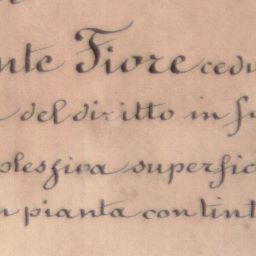 nte Fiore cedu
del diritto in fu
plessiva superfic
n pianta con tint